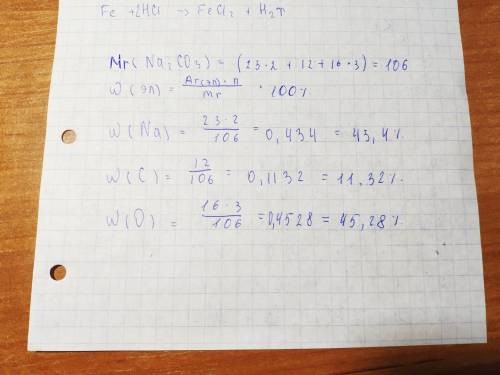 Fe + 2HCl → FeCl₂ + H₂↑
Mr(Na₂CO₃) = (23·2 + 12 + 16·3) = 106
ω(эл) = Ar(эл)·n / Mr · 100%
ω(Na) = 23·2 / 106 = 0,434 = 43,4%
ω(C) = 12 / 106 = 0,1132 = 11,32%.
ω(O) = 16·3 / 106 = 0,4528 = 45,28%